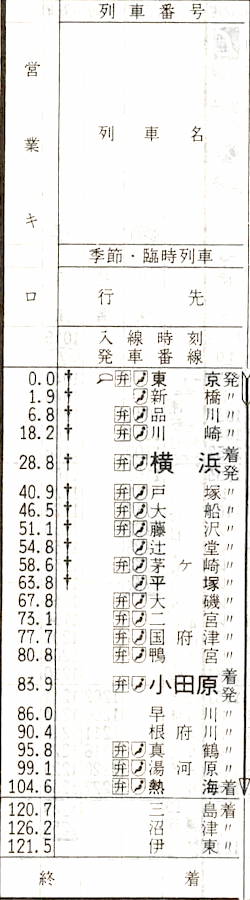 列車番号
営業キロ
列車名
季節・臨時列車
行先
入線時刻
発車番線
0.0 † 弁 東京 発
1.9 † 新橋 〃
6.8 † 弁 品川 〃
18.2 † 弁 川崎 〃
28.8 † 弁 横浜 着発
40.9 † 弁 戸塚 〃
46.5 † 弁 大船 〃
51.1 † 弁 藤沢 〃
54.8 † 辻堂 〃
58.6 † 弁 茅ヶ崎 〃
63.8 † 平塚 〃
67.8 弁 大磯 〃
73.1 弁 二宮 〃
77.7 弁 国府津 〃
80.8 弁 鴨宮 〃
83.9 弁 小田原 着発
86.0 早川 〃
90.4 根府川 〃
95.8 弁 真鶴 〃
99.1 弁 湯河原 〃
104.6 弁 熱海 着
120.7 三島 着
126.2 沼津 〃
121.5 伊東 〃
終着